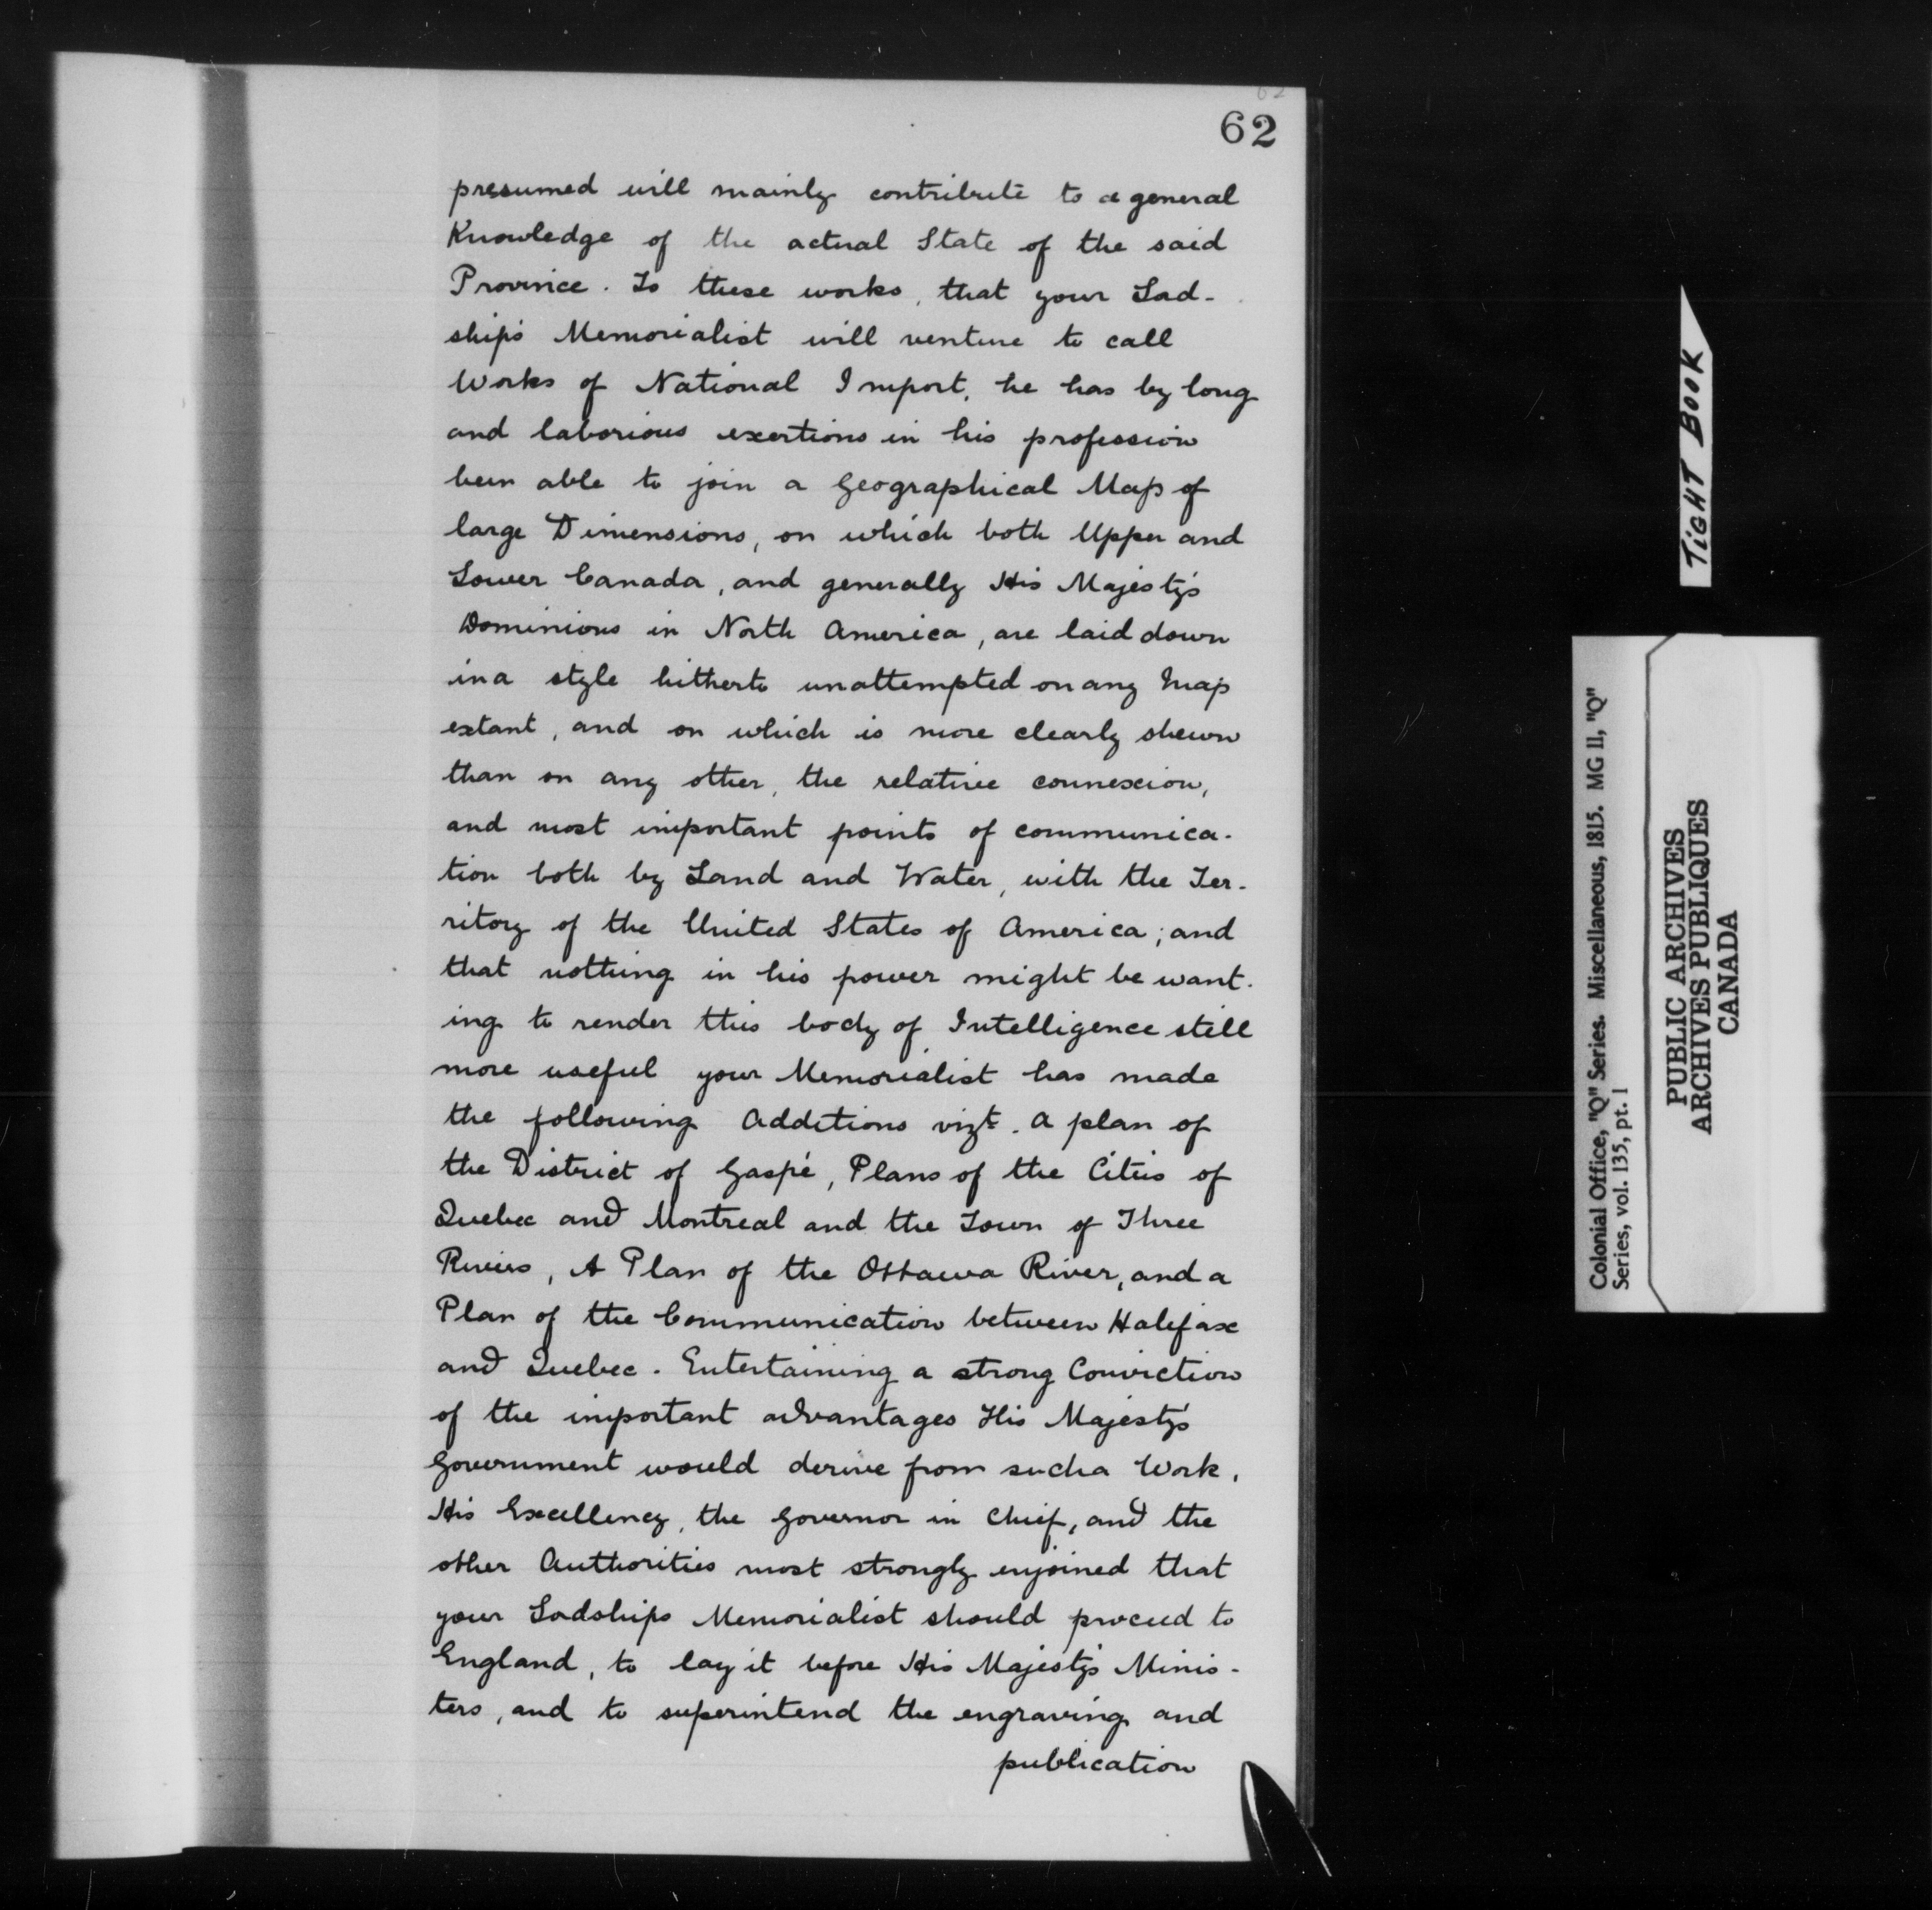 62
62
presumed will mainly contribute to a general
Knowledge of the actual State of the said
Province. To these works, that your Lord-
ship's Memorialist will venture to call
Works of National Import, he has by long
and laborious exertions in his profession
been able to join a Geographical Map of
large Dimensions, on which both Upper and
Lower Canada, and generally His Majesty's
Dominions in North America, are laid down
in a style hitherto unattempted on any Map
extant, and on which is more clearly shewn
than on any other, the relative connexion,
and most important points of communica-
tion both by Land and Water, with the Ter-
ritory of the United States of America; and
that nothing in his power might be want-
ing to render this body of Intelligence still
more useful your Memorialist has made
the following Additions vizt. a plan of
the District of Gaspé, Plans of the Cities of
Quebec and Montreal and the Town of Three
Rivers, A Plan of the Ottawa River, and a
Plan of the Communication between Halifax
and Quebec. Entertaining a strong Conviction
of the important advantages His Majesty's
Government would derive from such a Work,
His Excellency, the Governor in Chief, and the
other Authorities most strongly enjoined that
your Lordships Memorialist should proceed to
England, to lay it before His Majesty's Minis-
ters, and to superintend the engraving and
publication
TIGHT BOOK
Colonial Office, "Q" Series. Miscellaneous, 1815. MG 11, "Q"
Series, vol. 135, pt. 1
PUBLIC ARCHIVES
ARCHIVES PUBLIQUES
CANADA